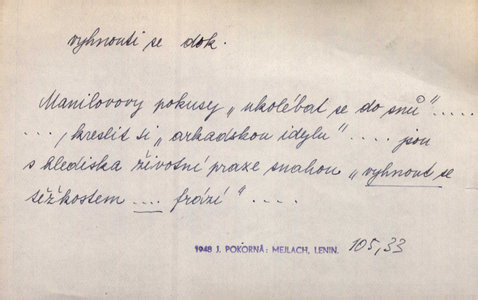 vyhnouti se dok.
Manilovovy pokusy „ukolébat se do snů".....
..., kreslit si „arkadskou idylu".... jsou
s hlediska životní praxe snahou „vyhnout se
těžkostem .... frází"....
1948 J. POKORNÁ: MEJLACH, LENIN. 105,33